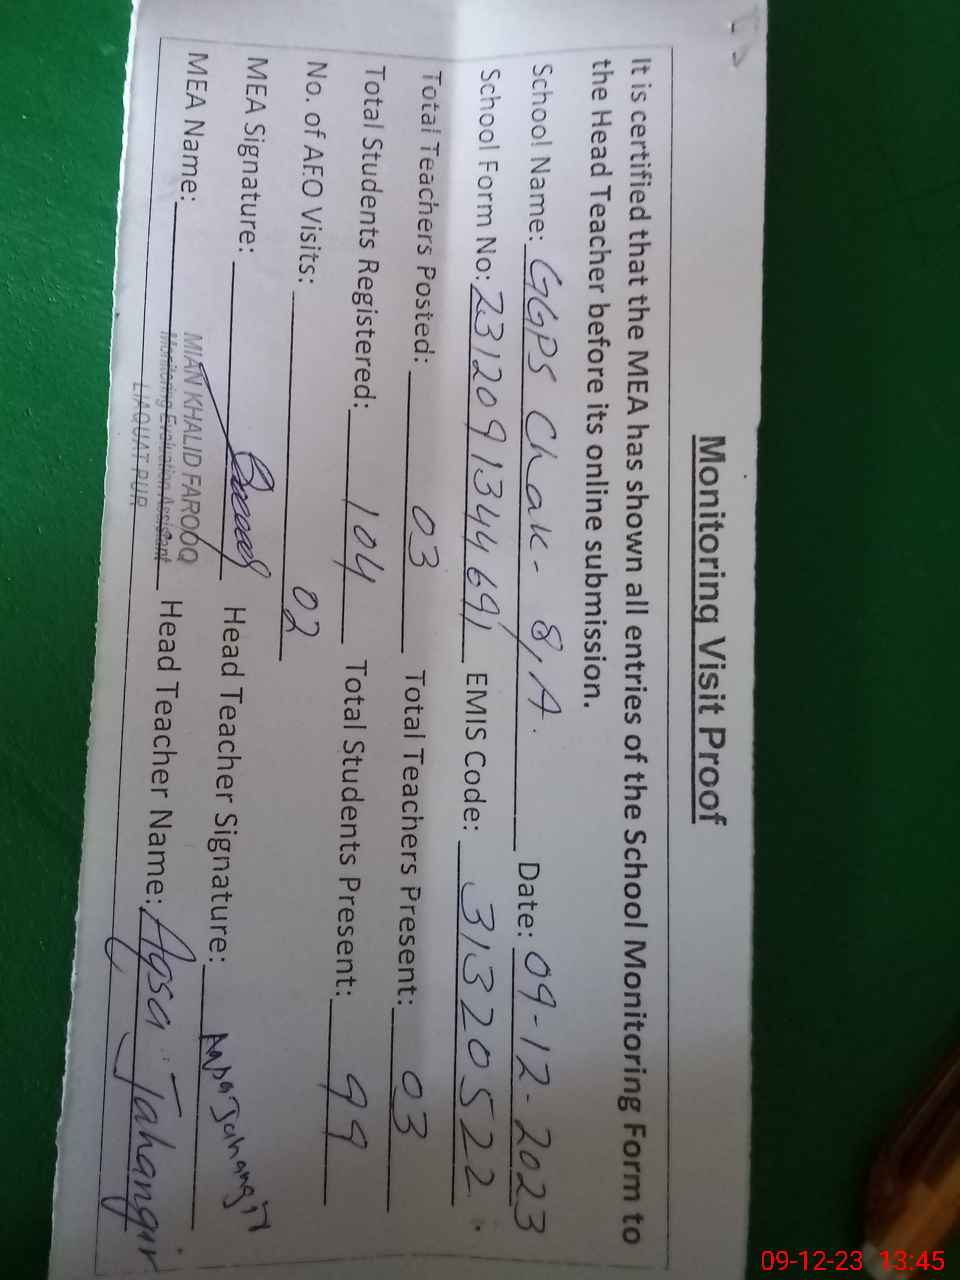 Monitoring Visit Proof
It is certified that the MEA has shown all entries of the School Monitoring Form to
the Head Teacher before its online submission.
School Name: GGPS Chak - 8/A. Date: 09-12-2023
School Form No: 2312091344691 EMIS Code: 31320522
Total Teachers Posted: 03 Total Teachers Present: 03
Total Students Registered: 104 Total Students Present: 99
No. of AEO Visits: 02
MEA Signature: Head Teacher Signature: Aqsa Jahangir
MEA Name: MIAN KHALID FAROOQ Head Teacher Name: Aqsa Jahangir
Monitoring Evaluation Assistant
LIAQUAT PUR
09-12-23 13:45